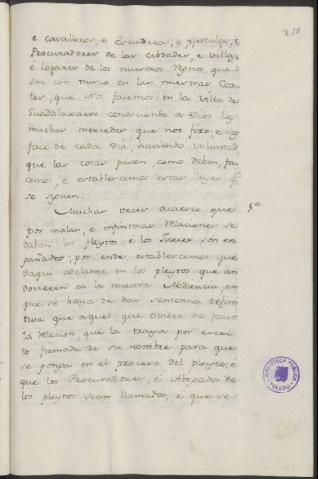 210
e cavalleros, e Escuderos, e fijosdalgo, e
Procuradores de las cibdades, e villas,
e logares de los nuestros Regnos, que
son con nusco en las nuestras Cor-
tes, que nos facemos en la Villa de
Guadalaxara conosciendo a Dios las
muchas mercedes que nos fizo, e nos
face de cada dia, haviendo voluntad
que las cosas pasen como deben, fa-
cemos, e establecemos estas leyes q.e
se siguen.
Muchas veces acaesce que 1.a
por malas, e infintosas Relaciones se
datan los pleytos, e los Jueces son en
gañados; por ende establecemos que
daqui adelante en los pleytos que an
dovieren en la nuestra Audiencia, en
que se haya de dar sentencia defini
tiva que aquel que oviere de facer
la relacion, que la traya por escri-
to firmada de su nombre para que
se ponga en el proceso del pleyto, e
que los Procuradores, e Abogados de
los pleytos sean llamados, e que se
BIBLIOTECA PUBLICA
TOLEDO